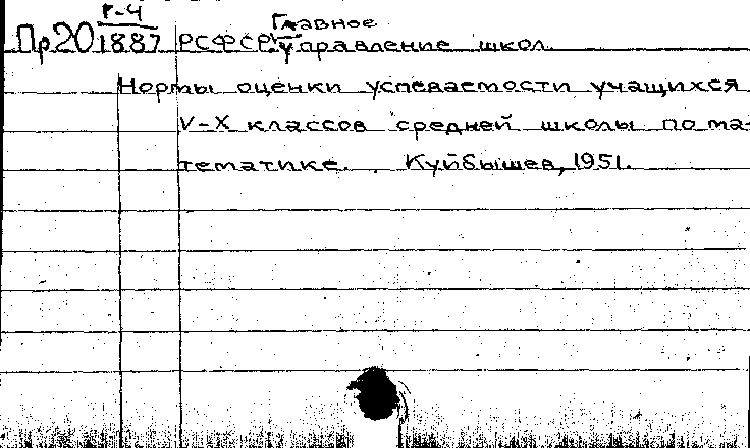 Р-4
Главное
Пр20 1887 РСФСР. Управление школ.
Нормы оценки успеваемости учащихся
V-X классов средней школы по ма-
тематике. Куйбышев, 1951.